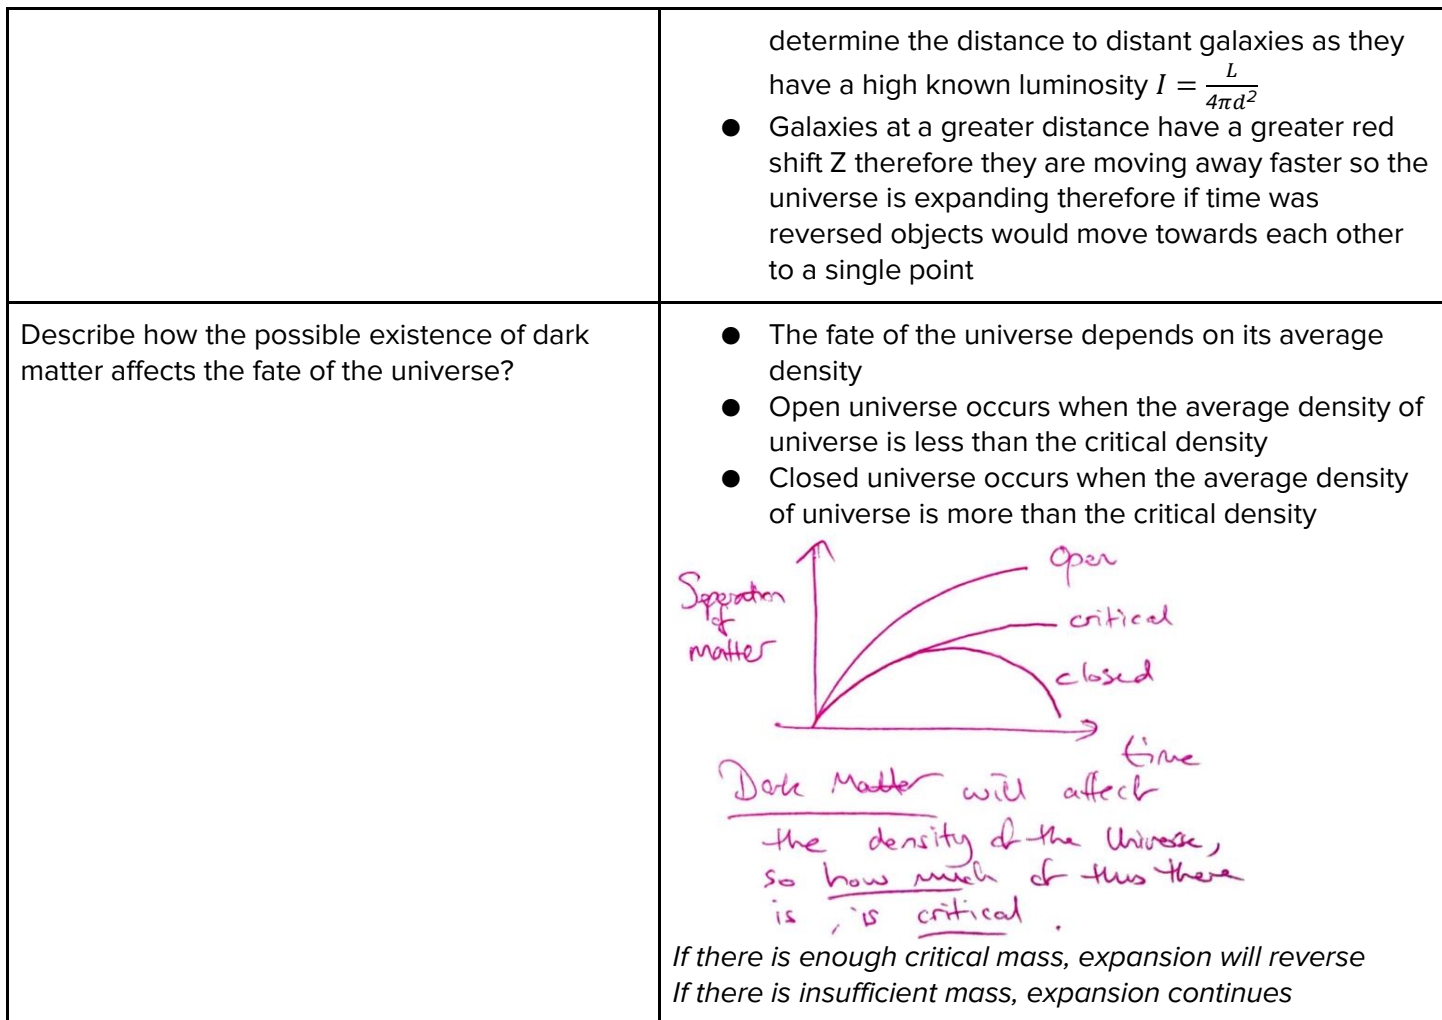 determine the distance to distant galaxies as they
have a high known luminosity I = L/4πd²
● Galaxies at a greater distance have a greater red
shift Z therefore they are moving away faster so the
universe is expanding therefore if time was
reversed objects would move towards each other
to a single point
Describe how the possible existence of dark
matter affects the fate of the universe?
● The fate of the universe depends on its average
density
● Open universe occurs when the average density of
universe is less than the critical density
● Closed universe occurs when the average density
of universe is more than the critical density
Open
Seperation
of
matter
critical
closed
time
Dark Matter will affect
the density of the Universe,
so how much of this there
is, is critical.
If there is enough critical mass, expansion will reverse
If there is insufficient mass, expansion continues